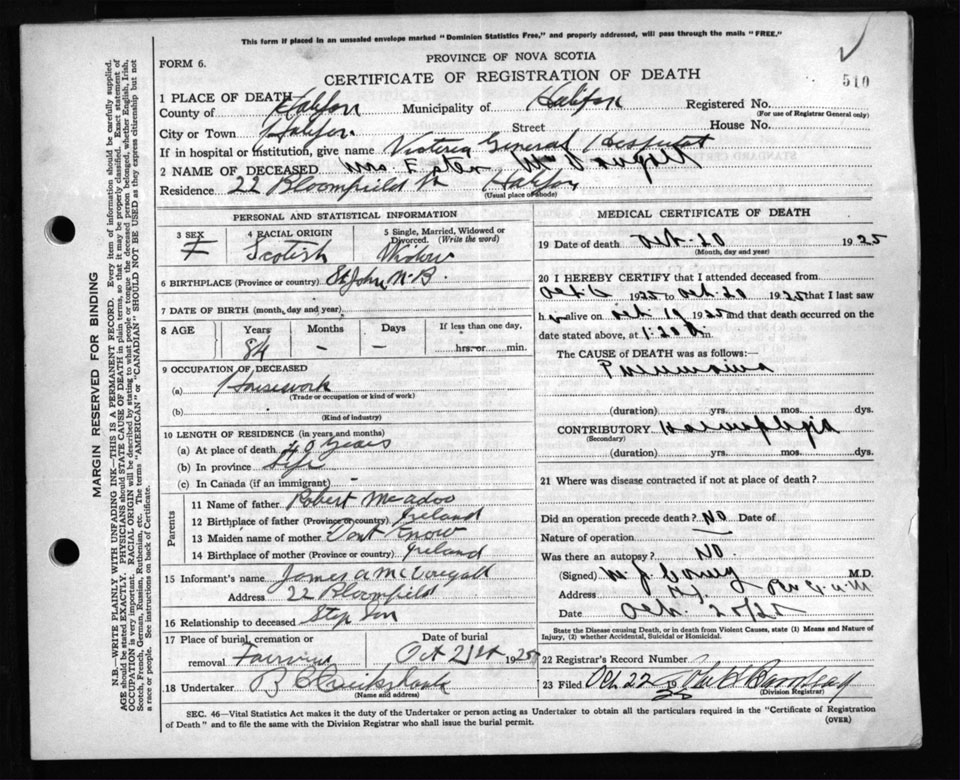 This form if placed in an unsealed envelope marked "Dominion Statistics Free," and properly addressed, will pass through the mails "FREE."
FORM 6.
PROVINCE OF NOVA SCOTIA
510
CERTIFICATE OF REGISTRATION OF DEATH
1 PLACE OF DEATH
County of Halifax Municipality of Halifax Registered No.
(For use of Registrar General only)
City or Town Halifax Street House No.
If in hospital or institution, give name Victoria General Hospital
2 NAME OF DECEASED Mrs
Residence 22 Bloomfield St Halifax
(Usual place of abode)
PERSONAL AND STATISTICAL INFORMATION
3 SEX 4 RACIAL ORIGIN 5 Single, Married, Widowed or Divorced. (Write the word)
F Scotish Widow
6 BIRTHPLACE (Province or country) St John N-B.
7 DATE OF BIRTH (month, day and year)
8 AGE Years Months Days If less than one day,
84 - - hrs. or min.
9 OCCUPATION OF DECEASED
(a) Housework
(Trade or occupation or kind of work)
(b)
(Kind of industry)
10 LENGTH OF RESIDENCE (in years and months)
(a) At place of death years
(b) In province life
(c) In Canada (if an immigrant)
Parents
11 Name of father Robert McAdoo
12 Birthplace of father (Province or country) Ireland
13 Maiden name of mother Dont Know
14 Birthplace of mother (Province or country) Ireland
15 Informant's name James A McDougall
Address 22 Bloomfield
16 Relationship to deceased Step Son
17 Place of burial, cremation or removal Fairview
Date of burial Oct 21st 1925
18 Undertaker
MEDICAL CERTIFICATE OF DEATH
19 Date of death Oct. 20 1925
(Month, day and year)
20 I HEREBY CERTIFY that I attended deceased from
Oct. 6 1925 to Oct. 20 1925 that I last saw
h alive on Oct. 19 1925 and that death occurred on the
date stated above, at 1.20 m.
The CAUSE of DEATH was as follows:
Pneumonia
(duration) yrs. mos. dys.
CONTRIBUTORY
(Secondary)
(duration) yrs. mos. dys.
21 Where was disease contracted if not at place of death?
Did an operation precede death? NO Date of
Nature of operation
Was there an autopsy? NO.
(Signed) M.D.
Address
Date Oct.
State the Disease causing Death, or in death from Violent Causes, state (1) Means and Nature of Injury, (2) whether Accidental, Suicidal or Homicidal.
22 Registrar's Record Number
23 Filed Oct 22 1925
(Division Registrar)
SEC. 46—Vital Statistics Act makes it the duty of the Undertaker or person acting as Undertaker to obtain all the particulars required in the "Certificate of Registration
of Death" and to file the same with the Division Registrar who shall issue the burial permit.
(OVER)
MARGIN RESERVED FOR BINDING
N.B.—WRITE PLAINLY WITH UNFADING INK—THIS IS A PERMANENT RECORD. Every item of information should be carefully supplied.
AGE should be stated EXACTLY. PHYSICIANS should STATE CAUSE OF DEATH in plain terms, so that it may be properly classified. Exact statement of
OCCUPATION is very important. RACIAL ORIGIN will be described by stating to what people or tongue the deceased person belonged, whether English, Irish,
Scotch, French, German, Russian, Ruthenian, etc. The terms "AMERICAN" or "CANADIAN" SHOULD NOT BE USED as they express citizenship but not
a race or people. See instructions on back of Certificate.